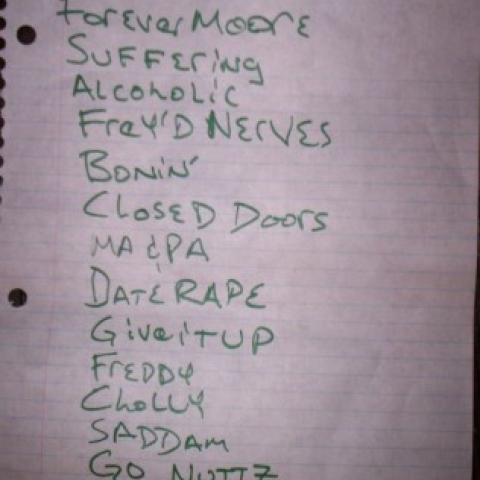 Forever Moore
Suffering
Alcoholic
Fray'D NERVES
Bonin'
Closed Doors
MA & PA
DATE RAPE
Give it UP
FREDDY
Cholly
SADDAM
GO NUTTZ